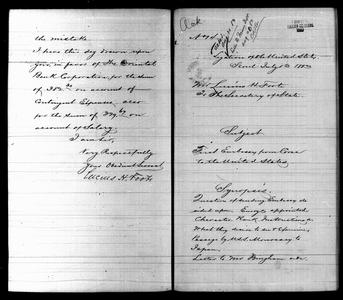 the mistake.
I have this day drawn upon
you, in favor of The Oriental
Bank Corporation for the sum
of on account of
Contingent Expenses, also
for the sum of on
account of Salary.
I am Sir,
Very Respectfully
Your Obedient Servant
Lucius H. Foote
Legation of the United States
Seoul July 1883
Mr. Lucius H. Foote
To The Secretary of State.
Subject
First Embassy from Corea
to the United States
Synopsis.
Question of sending Embassy de-
cided upon. Envoys appointed.
Character, Rank, Instructions &c.
What they desire to see & examine.
Passage by U.S.S. Monocacy to
Japan.
Letter to Mr Bingham